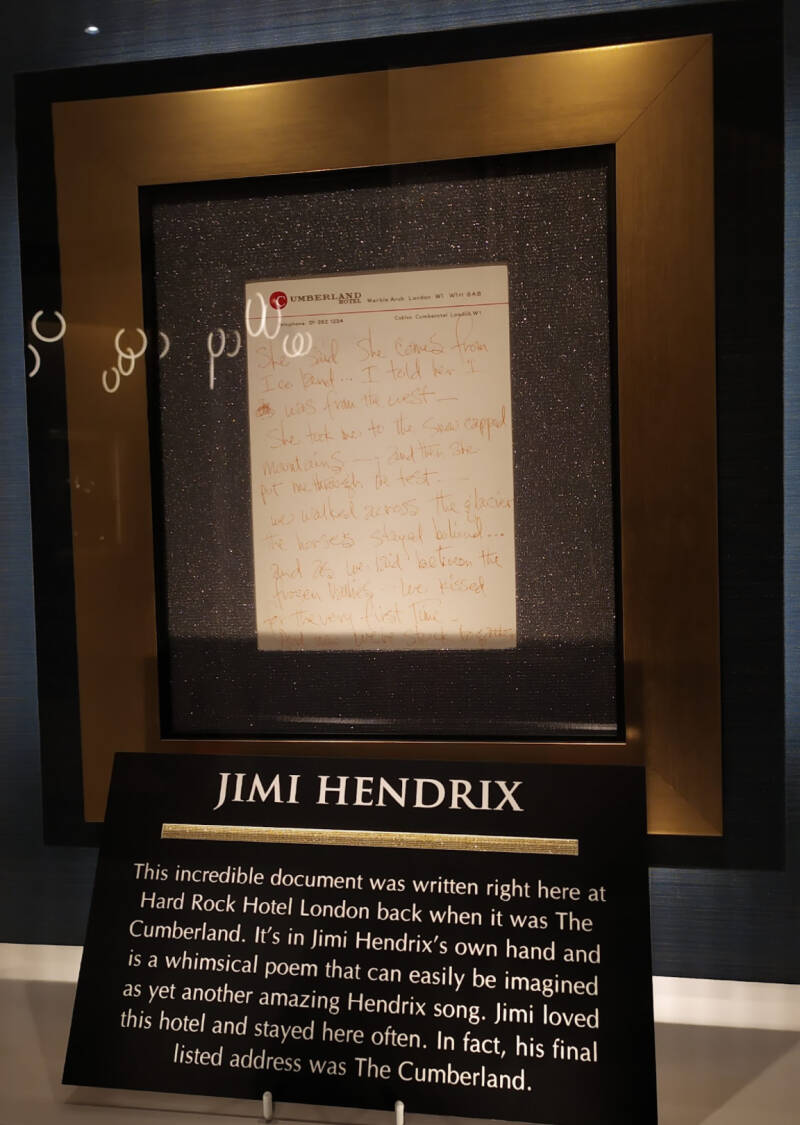 CUMBERLAND HOTEL Marble Arch London W1 W1H 8AB
Telephone 01-262 1234 Cables Cumberotel London W1
She said She comes from
Ice land... I told her I
was from the west —
She took me to the snow capped
mountains — and then she
put me through the test. —
we walked across the glacier
the horses stayed behind...
and as we laid between the
frozen we kissed
for the very first Time —
JIMI HENDRIX
This incredible document was written right here at
Hard Rock Hotel London back when it was The
Cumberland. It's in Jimi Hendrix's own hand and
is a whimsical poem that can easily be imagined
as yet another amazing Hendrix song. Jimi loved
this hotel and stayed here often. In fact, his final
listed address was The Cumberland.